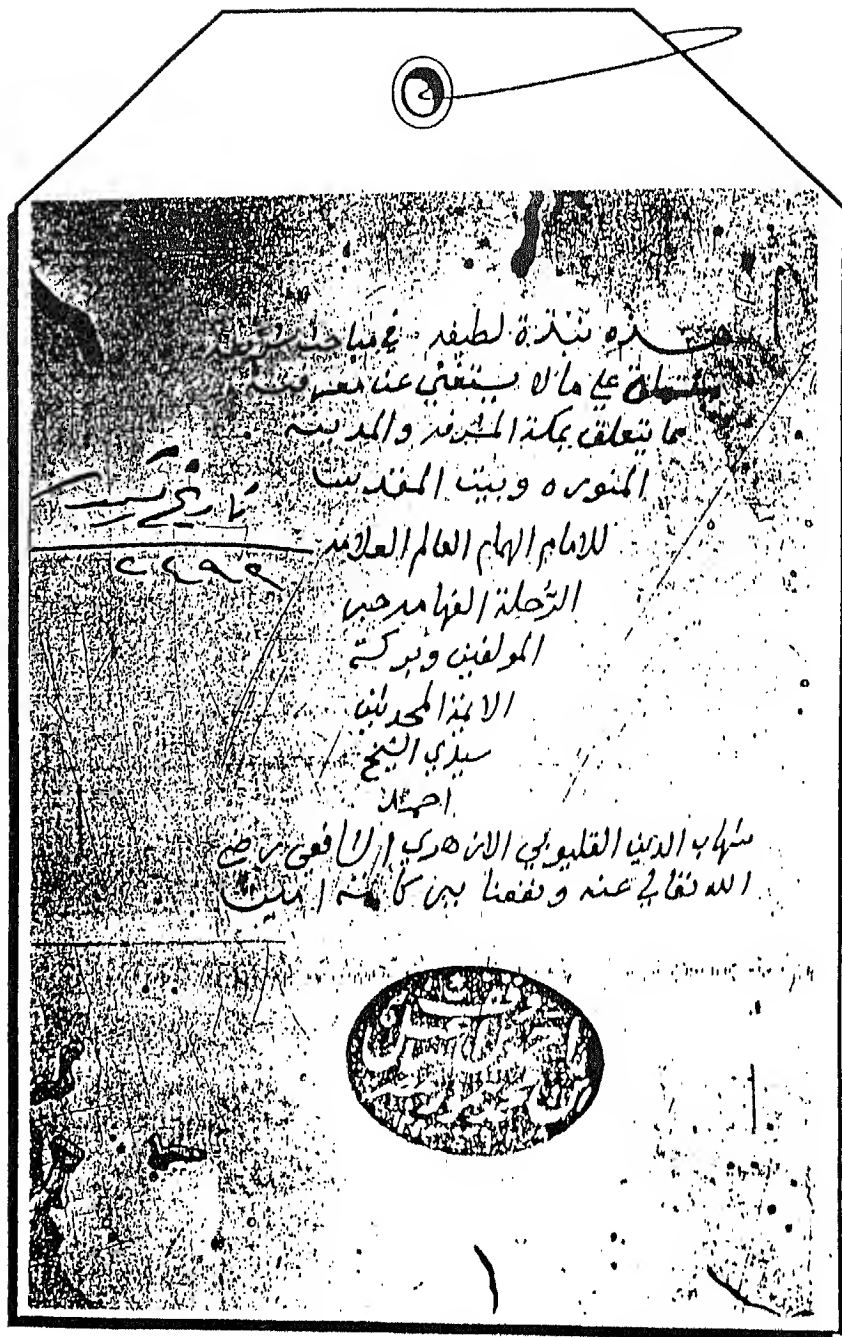 هذه نبذة لطيفه في مباحث شريفة
على ما لا يستغنى عن معرفته
مما يتعلق بمكة المشرفه والمدينه
المنوره وبيت المقدس
للامام الهمام العالم العلامه
الرُحلة الفهامه حبر
المولفين وبركة
الائمة المحدثين
سيدي الشيخ
احمد
شهاب الدين القليوبي الازهري الشافعي رضي
الله تعالى عنه ونفعنا ببركاته امين
تاريخ
٢٤٩٩